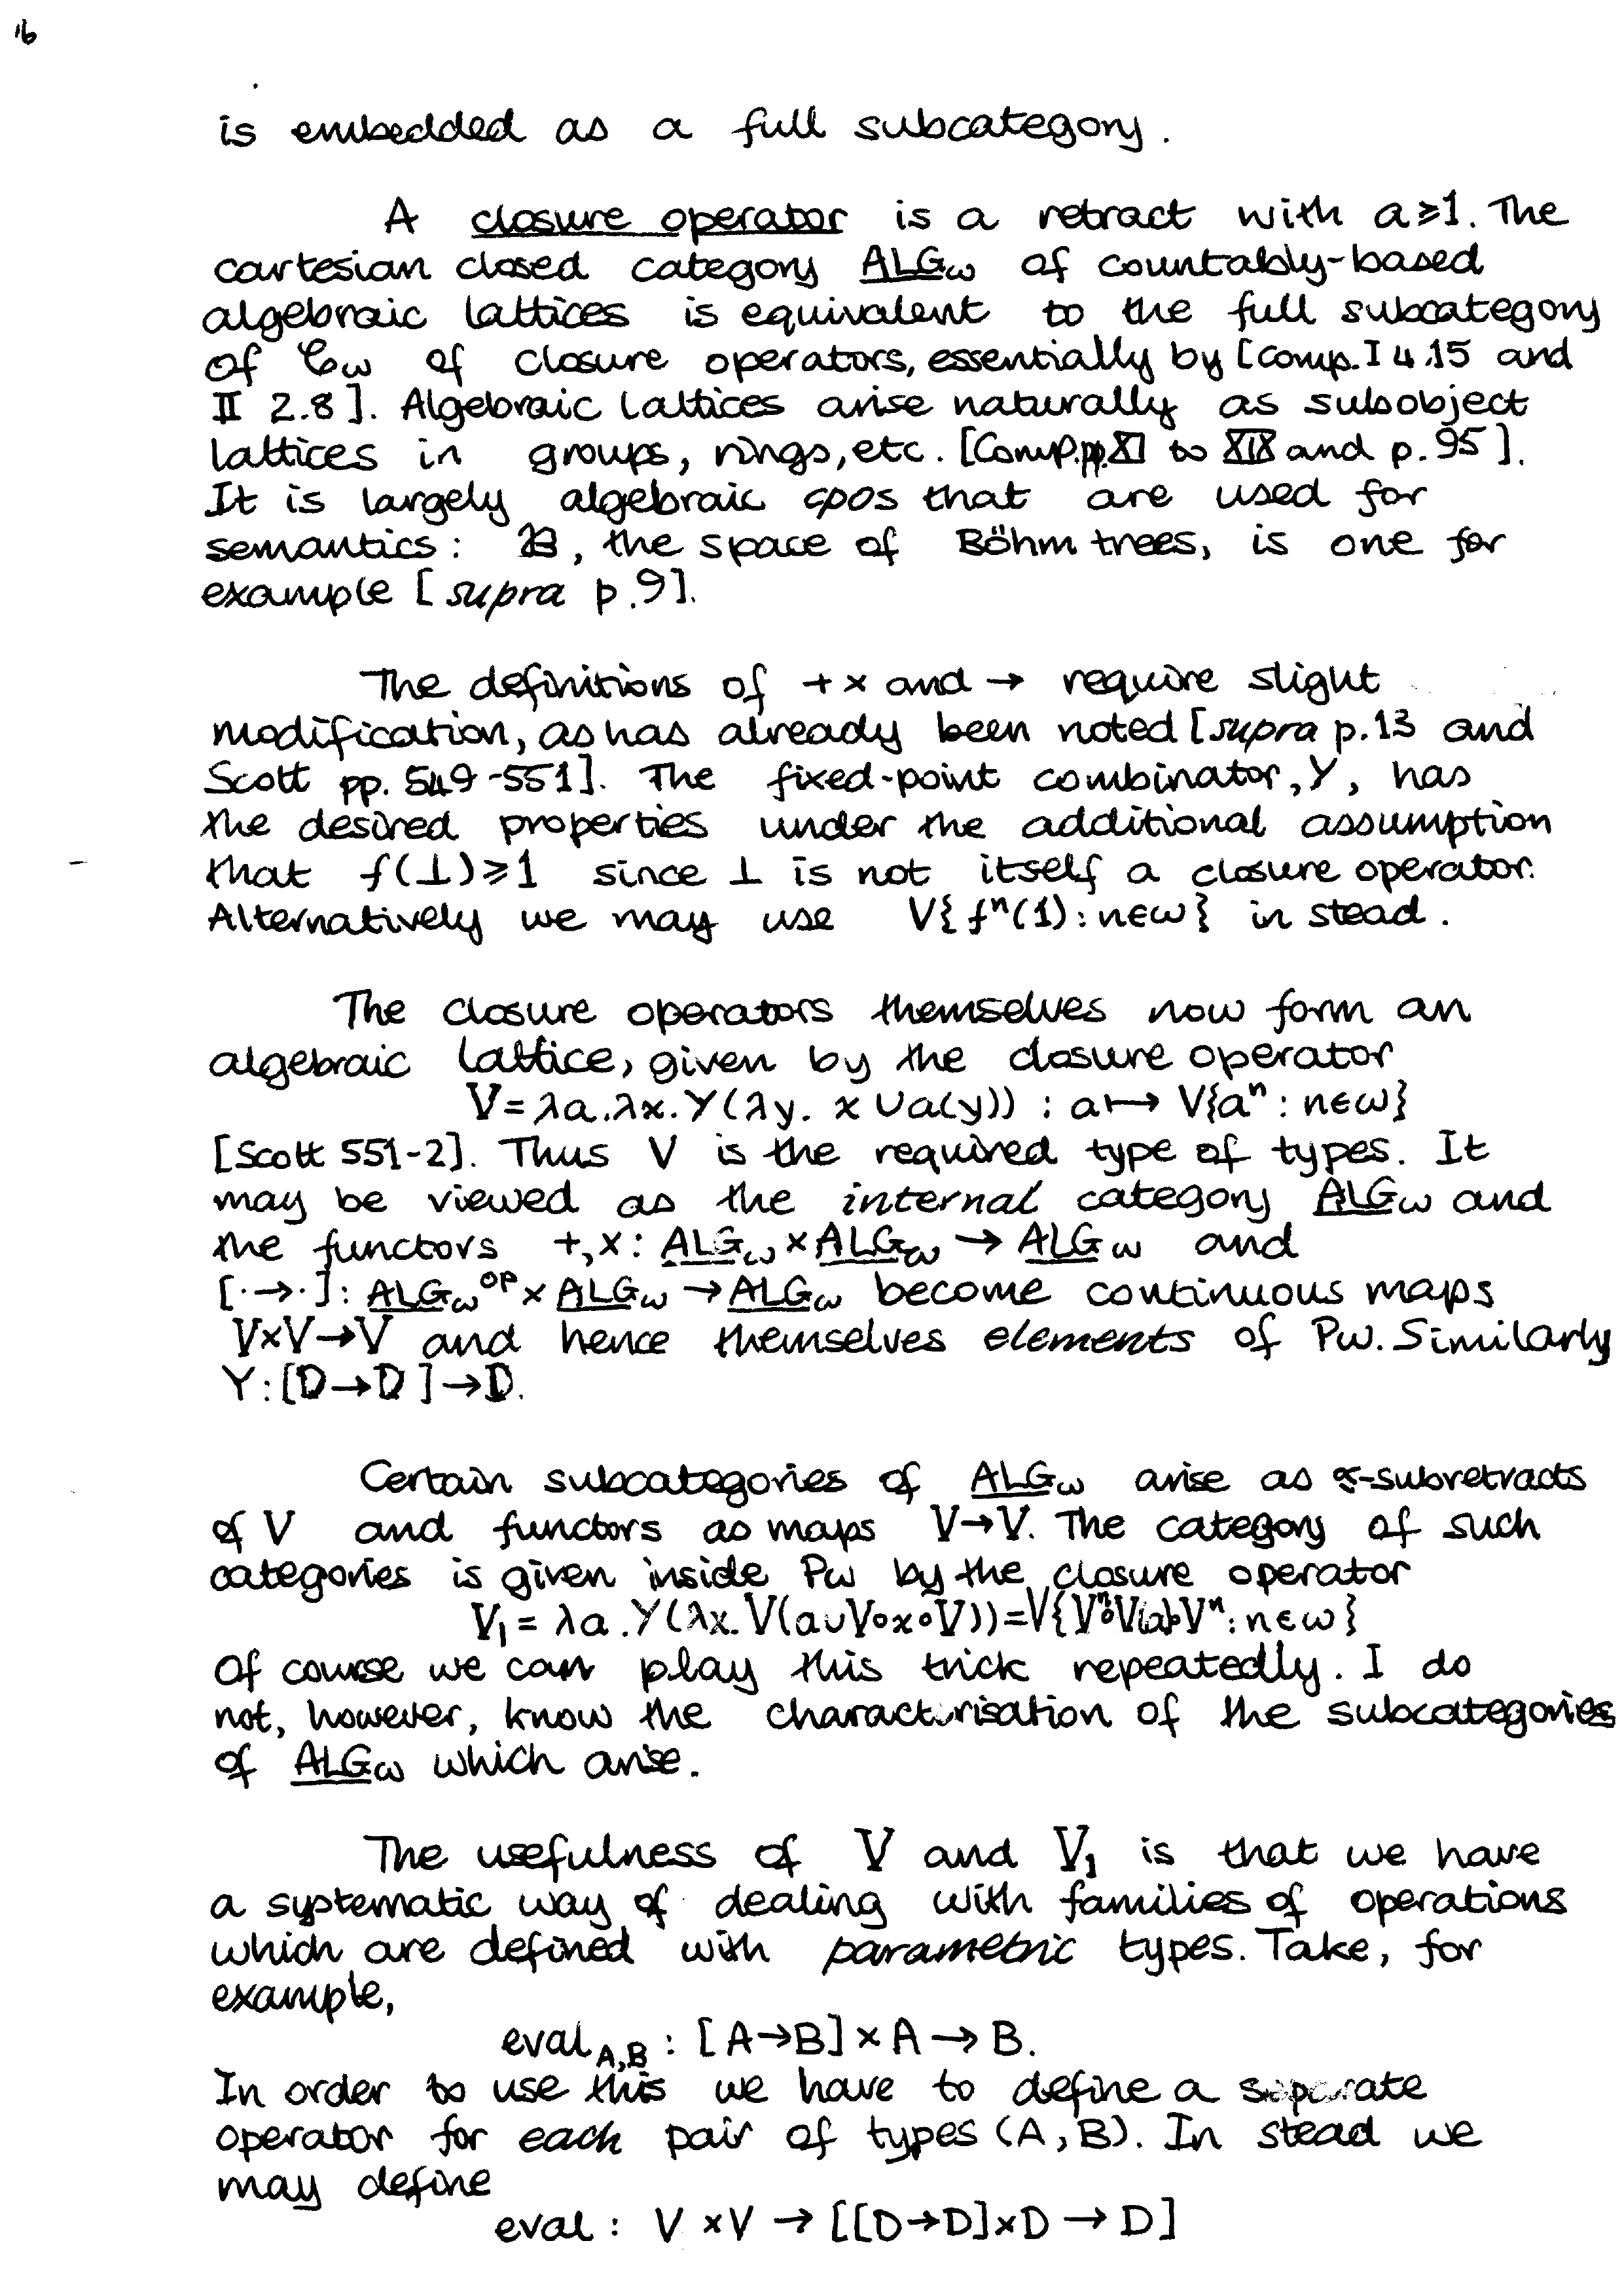 16
is embedded as a full subcategory.
A closure operator is a retract with a≥1. The
cartesian closed category ALGω of countably-based
algebraic lattices is equivalent to the full subcategory
of 𝒞ω of closure operators, essentially by [Comp. I 4.15 and
II 2.8]. Algebraic lattices arise naturally as subobject
lattices in groups, rings, etc. [Comp. pp. XI to XIX and p. 95].
It is largely algebraic cpos that are used for
semantics: 𝔅, the space of Böhm trees, is one for
example [supra p.9].
The definitions of + × and → require slight
modification, as has already been noted [supra p.13 and
Scott pp. 549-551]. The fixed-point combinator, Y, has
the desired properties under the additional assumption
that f(⊥)≥1 since ⊥ is not itself a closure operator.
Alternatively we may use V{fⁿ(1): n∈ω} in stead.
The closure operators themselves now form an
algebraic lattice, given by the closure operator
V = λa.λx.Y(λy. x ∪ a(y)) : a ↦ V{aⁿ : n∈ω}
[Scott 551-2]. Thus V is the required type of types. It
may be viewed as the internal category ALGω and
the functors +,×: ALGω×ALGω → ALGω and
[·→·]: ALGω^op × ALGω → ALGω become continuous maps
V×V→V and hence themselves elements of Pω. Similarly
Y:[D→D]→D.
Certain subcategories of ALGω arise as -subretracts
of V and functors as maps V→V. The category of such
categories is given inside Pω by the closure operator
V₁ = λa.Y(λx.V(a∪V∘x∘V))=V{Vⁿ∘V(a)∘Vⁿ: n∈ω}
Of course we can play this trick repeatedly. I do
not, however, know the characterisation of the subcategories
of ALGω which arise.
The usefulness of V and V₁ is that we have
a systematic way of dealing with families of operations
which are defined with parametric types. Take, for
example,
eval_A,B : [A→B] × A → B.
In order to use this we have to define a separate
operator for each pair of types (A,B). In stead we
may define
eval : V × V → [[D→D]×D → D]